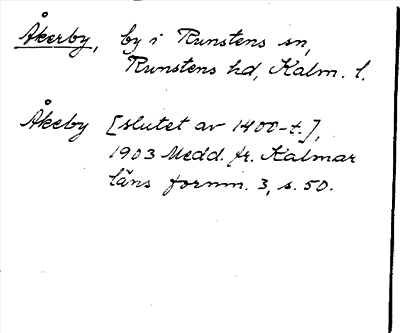 Åkerby, by i Runstens sn,
Runstens hd, Kalm. l.
Åkeby [slutet av 1400-t.],
1903 Medd. fr. Kalmar
läns fornm. 3, s. 50.